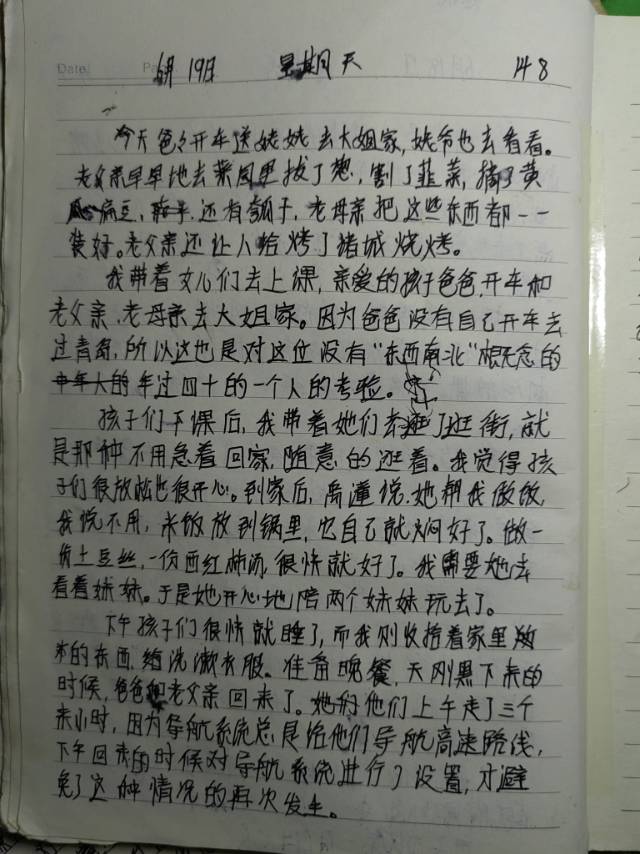 Date
6月19日 星期天 148
今天爸爸开车送姥姥去大姐家,姥爷也去看看。
老父亲早早地去菜园里拔了葱,割了韭菜,摘了黄
瓜、扁豆、还有瓠子,老母亲把这些东西都一一
装好。老父亲还让人给烤了诸城烧烤。
我带着女儿们去上课,亲爱的孩子爸爸开车和
老父亲、老母亲去大姐家。因为爸爸没有自己开车去
过青岛,所以这也是对这位没有“东西南北”概念的
中年人的年过四十的一个人的考验。
孩子们下课后,我带着她们去逛了逛街,就
是那种不用急着回家,随意的逛着。我觉得孩
子们很放松也很开心。到家后,禹潼说,她帮我做饭,
我说不用,米饭放到锅里,它自己就焖好了。做一
份土豆丝,一份西红柿汤,很快就好了。我需要她去
看着妹妹。于是她开心地陪两个妹妹玩去了。
下午孩子们很快就睡了,而我则收拾着家里
的东西,给洗漱衣服。准备晚餐,天刚黑下来的
时候,爸爸和老父亲回来了。他们上午走了三个
来小时,因为导航系统总是给他们导航高速路线,
下午回来的时候对导航系统进行了设置,才避
免了这种情况的再次发生。